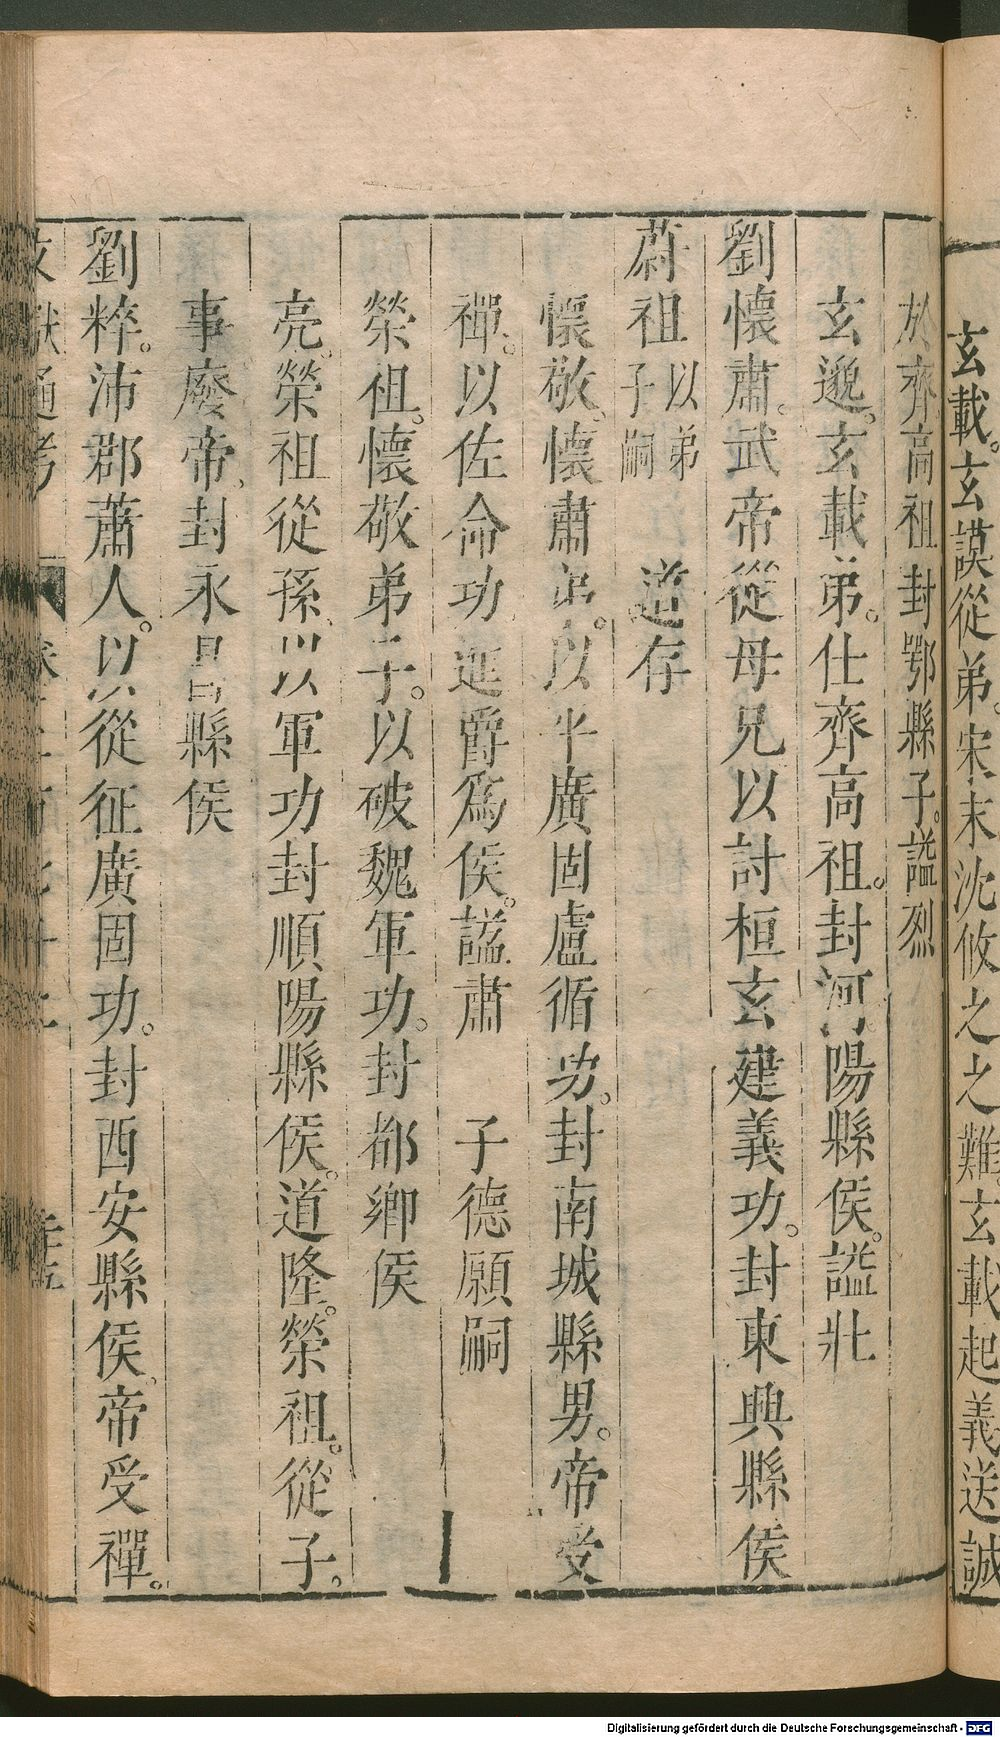 玄載。玄謨從弟。宋末沈攸之之難。玄載起義送誠
於齊高祖封鄂縣子。謚烈
玄邈。玄載弟。仕齊高祖。封河陽縣侯。謚壯
劉懷肅。武帝從母兄以討桓玄建義功。封東興縣侯
蔚祖 以弟子嗣 道存
懷敬、懷肅弟。以平廣固盧循功。封南城縣男。帝受
禪。以佐命功進爵爲侯。謚肅 子德願嗣
榮祖。懷敬弟子。以破魏軍功。封都鄉侯
亮。榮祖從孫、以軍功封順陽縣侯。道隆。榮祖。從子。
事廢帝、封永昌縣侯
劉粹。沛郡蕭人。以從征廣固功。封西安縣侯、帝受禪。
文獻通考
Digitalisierung gefördert durch die Deutsche Forschungsgemeinschaft - DFG